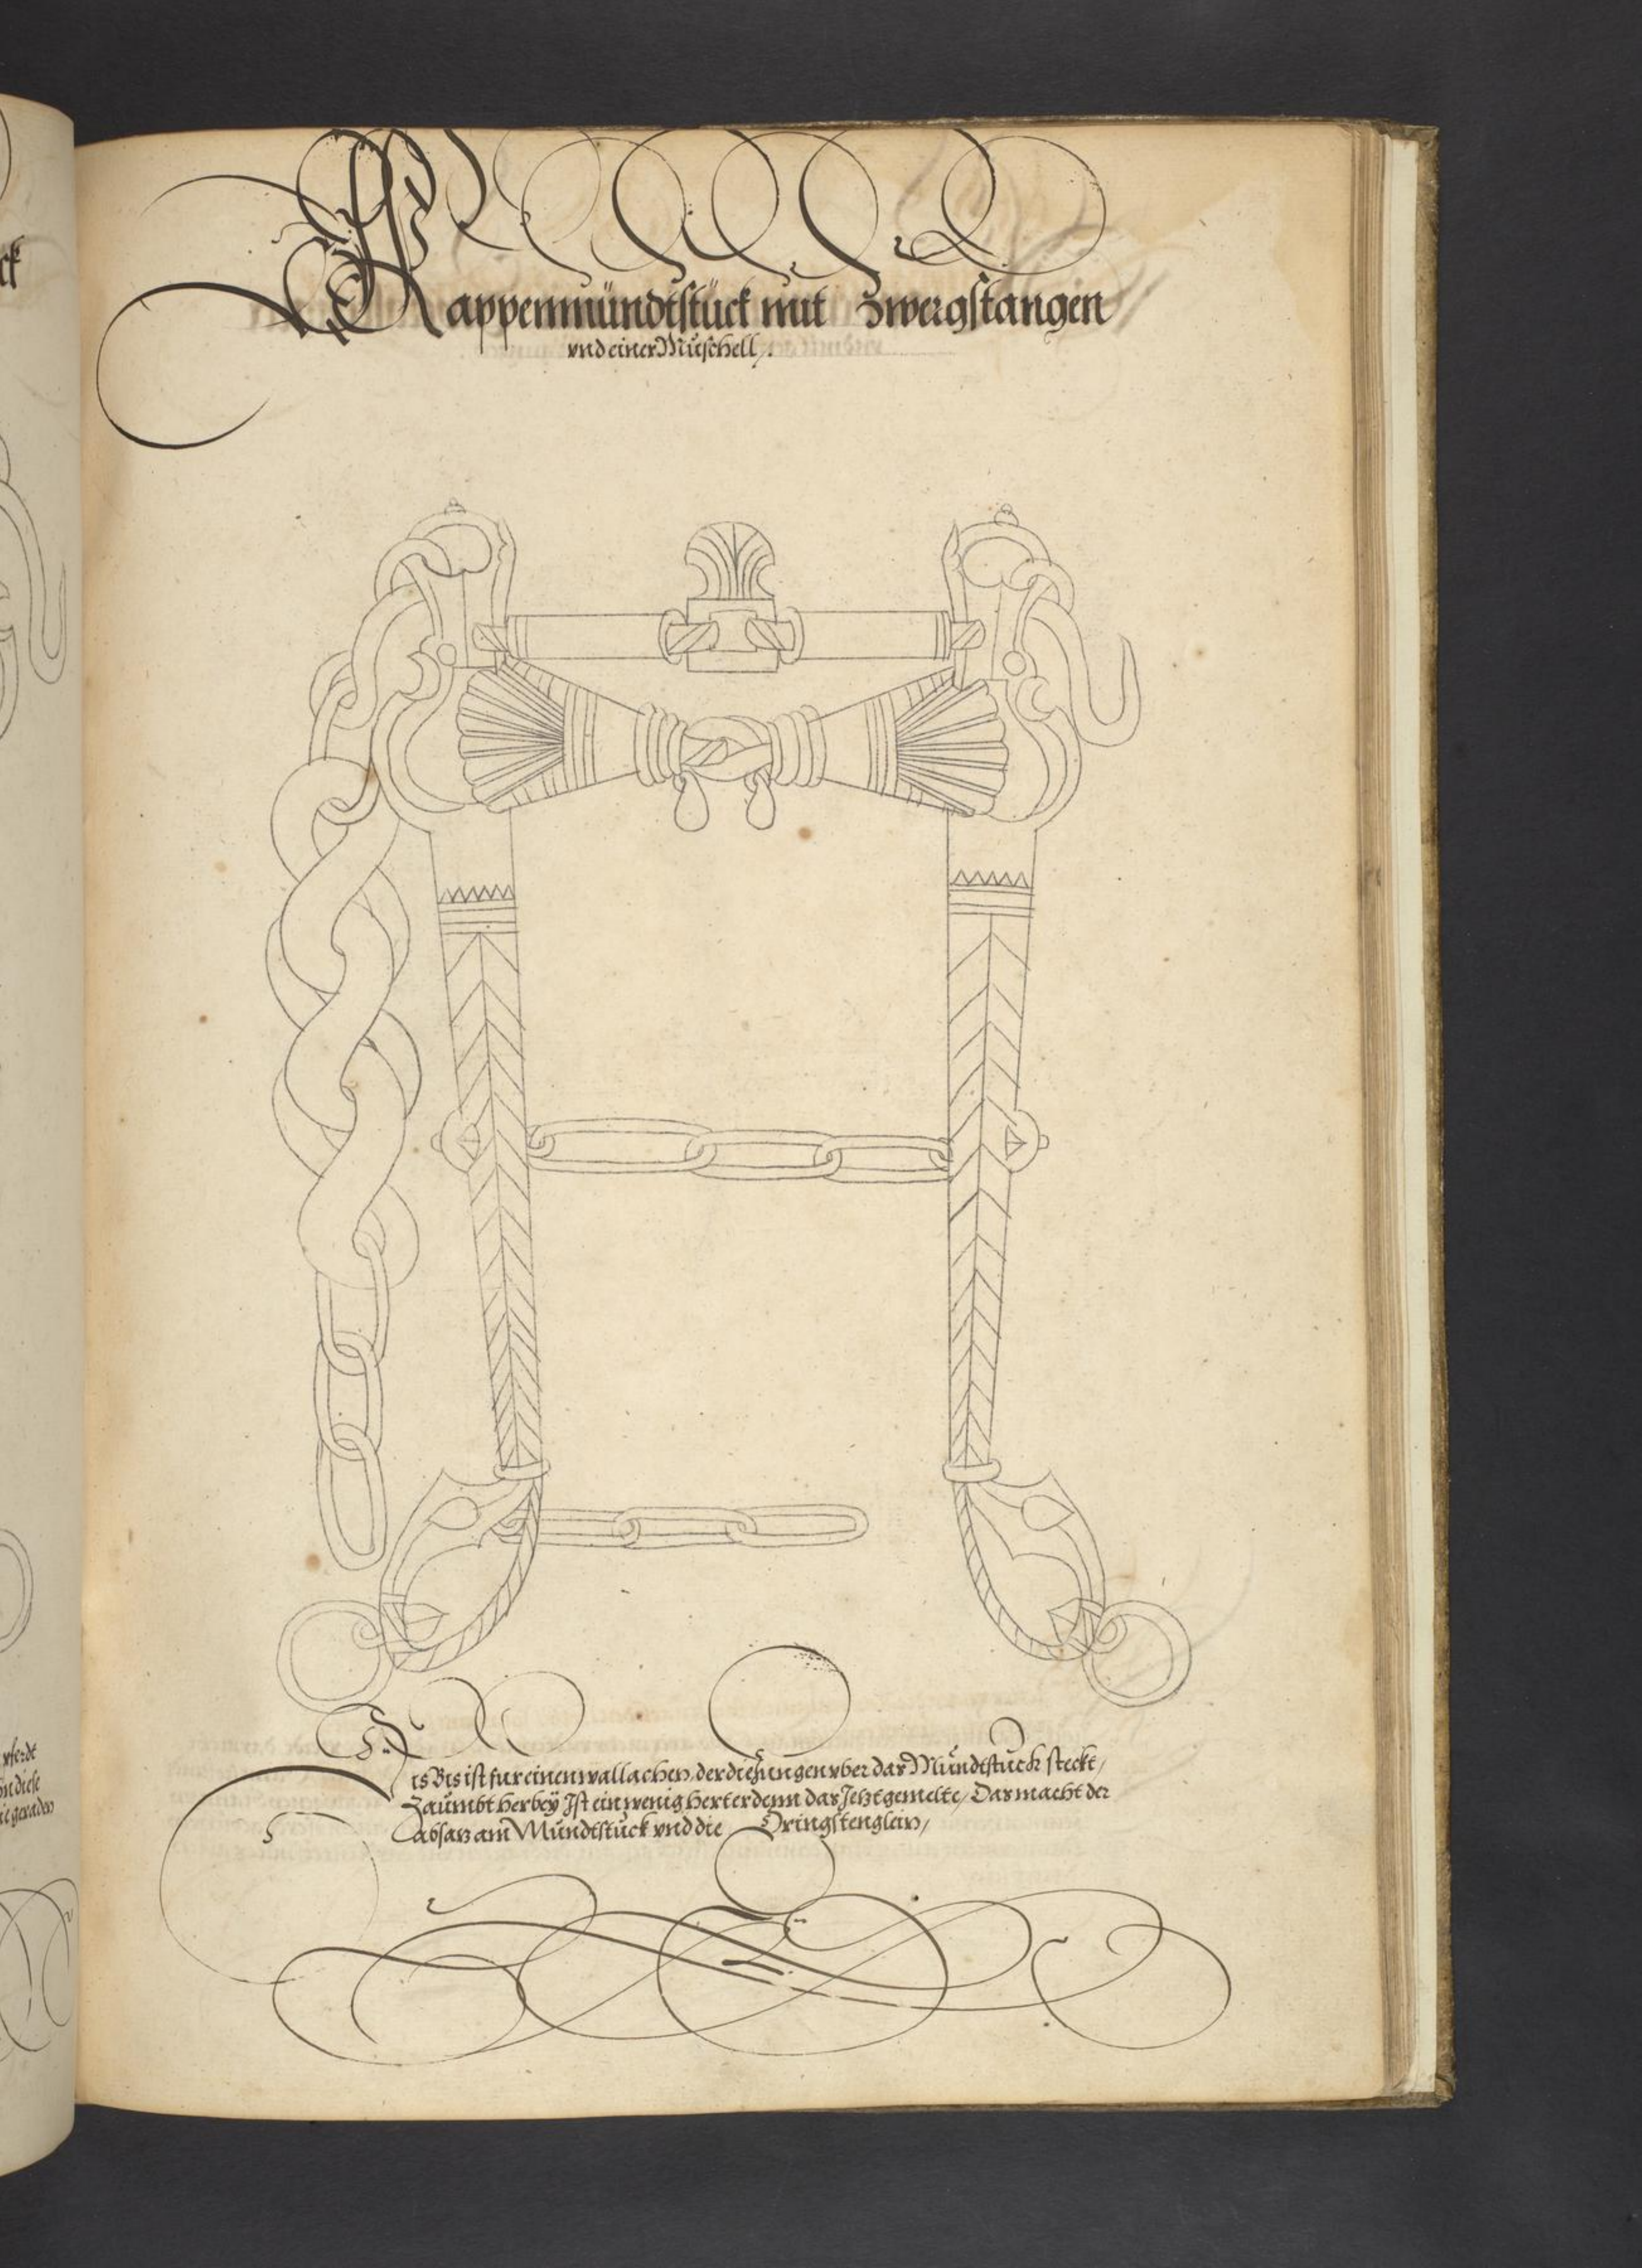 Kappenmündtstück mit Zwergstangen
vnd einer Muschell,.
ck
Dis Bis ist fur einen wallachen, der die Zungen vber das Mündtstück steckt,
Zaümbt herbeÿ Ist ein wenig herter denn das Jetzt gemelte, Das macht der
absatz am Mündtstück vnd die Dringstenglein,
pferdt
die geraden